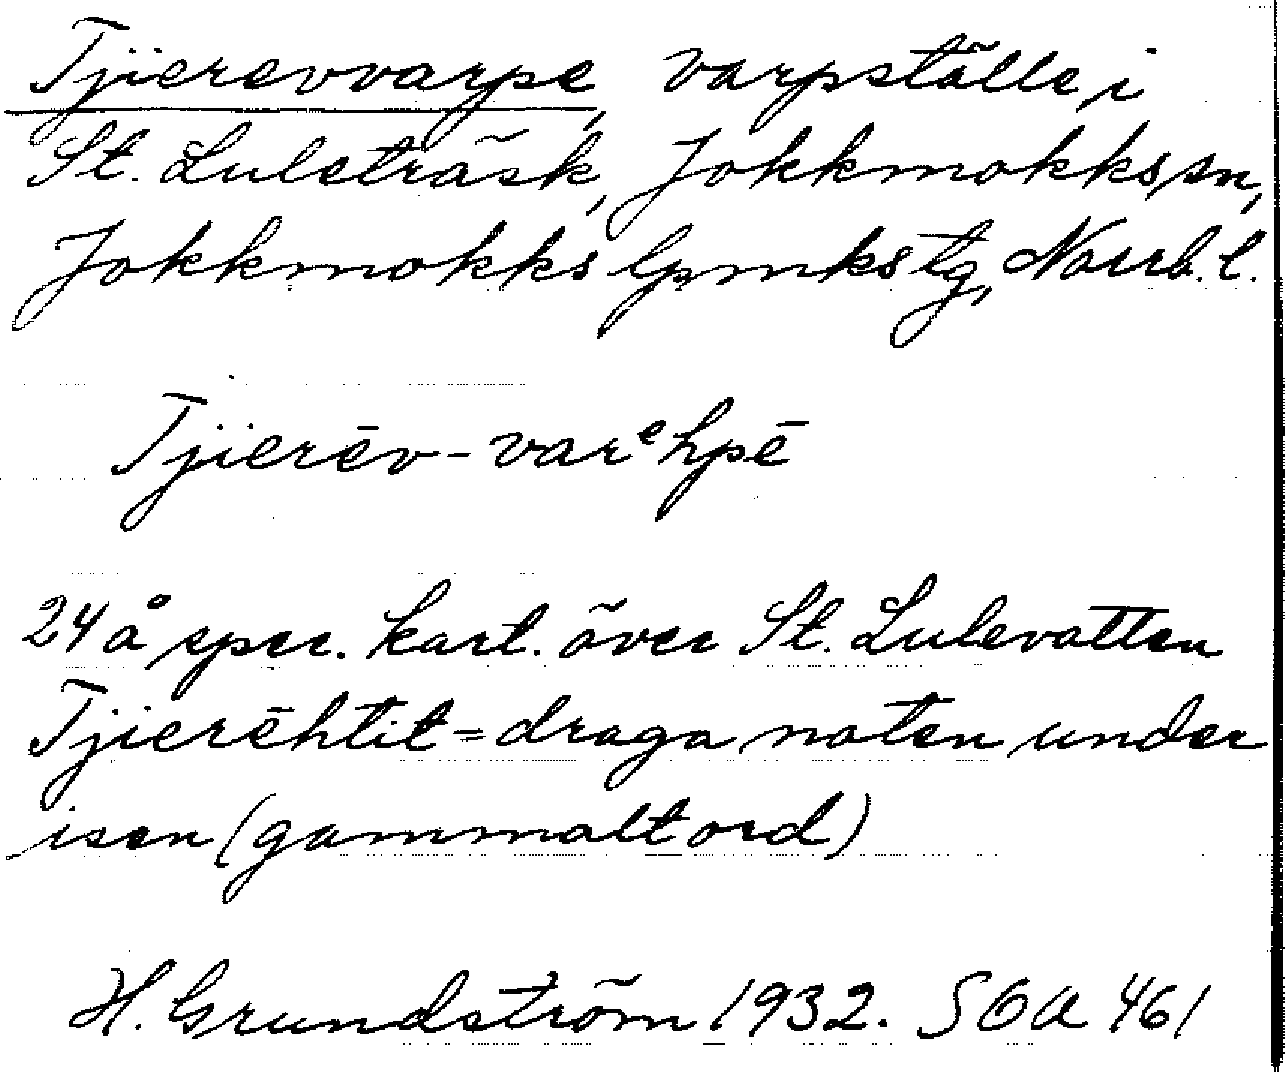 Tjierevvarpe, varpställe i
St. Luleträsk, Jokkmokks sn,
Jokkmokks lpmks tg, Norrb. l.
Tjierēv-varᵉhpē
24 å spec. kart. över St. Lulevatten
Tjierēhtit = draga noten under
isen (gammalt ord)
H. Grundström 1932. SOA 461